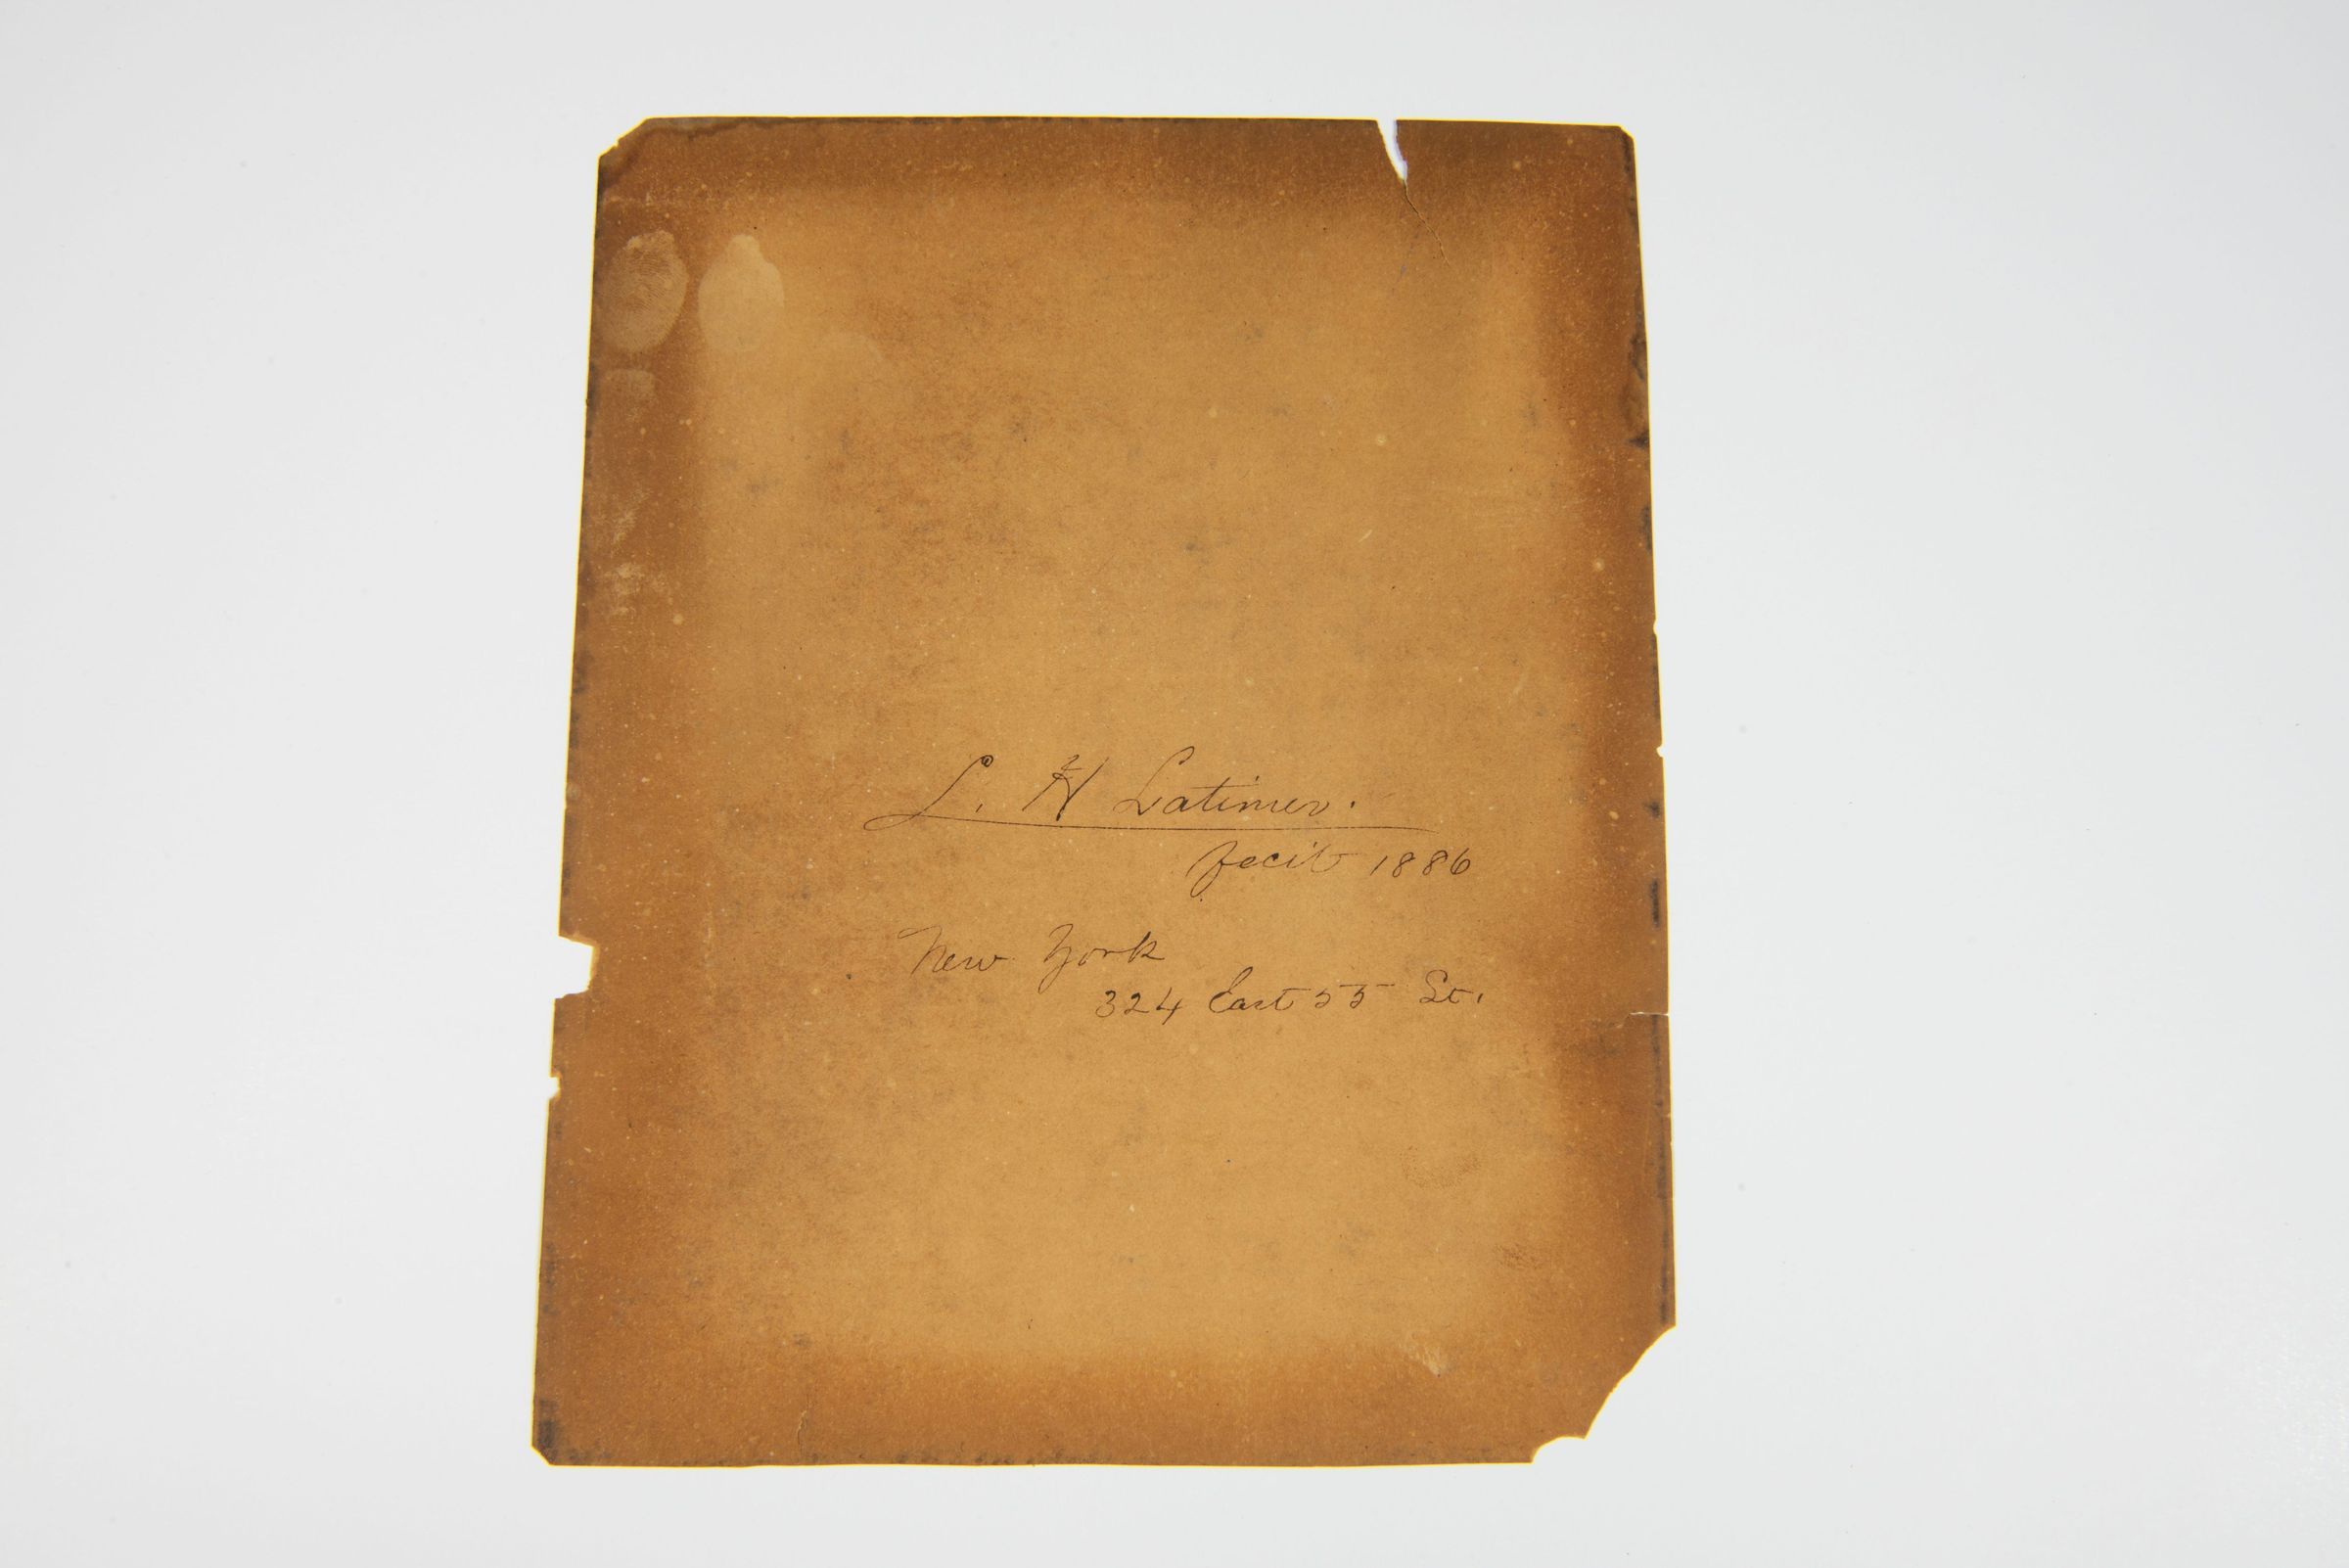 L. H Latimer.
fecit 1886
New York
324 East 55 St.